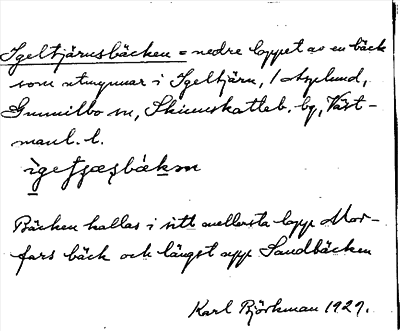 Igeltjärnsbäcken = nedre loppet av en bäck
som utmynnar i Igeltjärn, / Asplund,
Gunnilbo sn, Skinnskatteb. bg, Väst-
manl. l.
Bäcken kallas i sitt mellersta lopp Mor-
fars bäck och längst upp Sandbäcken
Karl Björkman 1929.